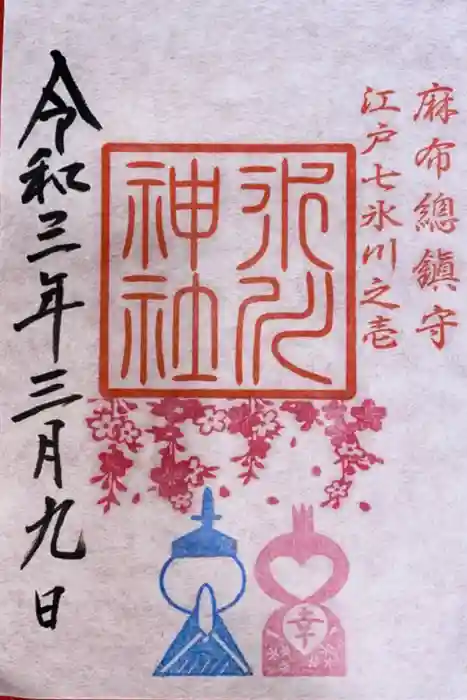 麻布總鎮守
江戸七氷川之壱
氷川
神社
幸
令和三年三月九日